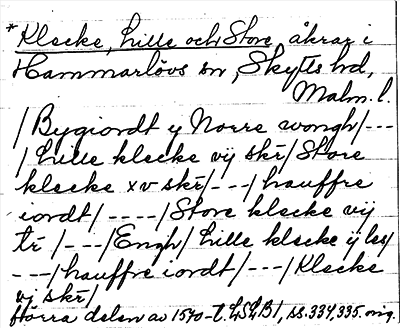 *Klecke, Lille och Store, åkrar i
Hammarlövs sn, Skytts hd,
Malm. l.
/Bygiordt y Norre wongh/---
/Lille klecke vij skr/Store
klecke xv skr/---/hauffre
iordt/----/Store klecke vij
tr/---/Engh/Lille klecke ij les/
---/hauffre iordt/---/Klecke
vj skr/
förra delen av 1540-t. LSLB1, ss. 334, 335. orig.